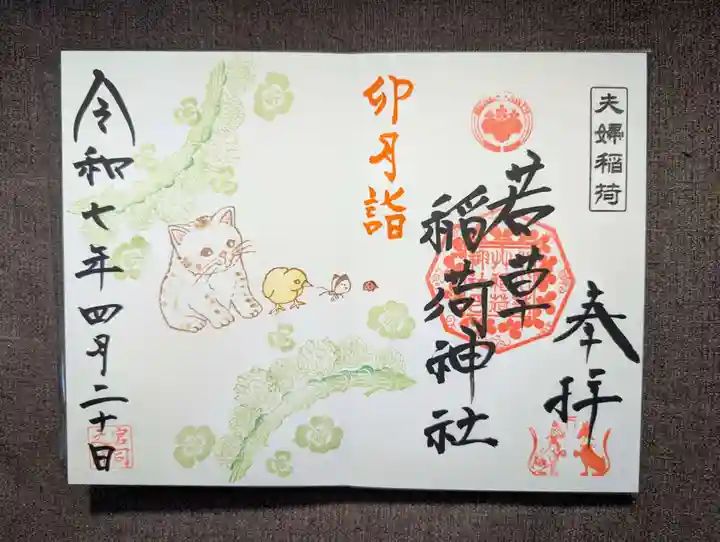 夫婦稲荷
奉拝
若草
稲荷神社
卯月詣
令和七年四月二十日